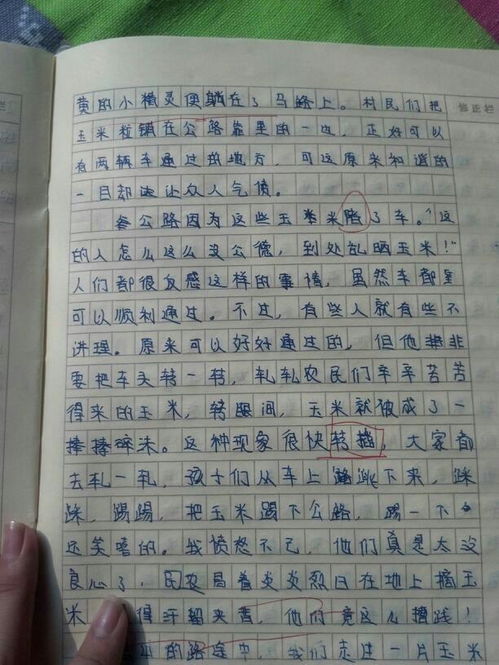 黄的小精灵便躺在了马路上。村民们把
玉米粒铺在公路靠里的一边，正好可以
有两辆车通过的地方，可这原来和谐的
一目却让众人气愤。
公路因为这些玉米堵了车。“这
的人怎么这么没公德，到处乱晒玉米！”
人们都很反感这样的事情，虽然车都是
可以顺利通过。不过，有些人就有些不
讲理。原来可以好好通过的，但他非
要把车头转一转，轧轧农民们辛辛苦苦
得来的玉米，转眼间，玉米就被成了一
捧捧碎沫。这种现象很快转播，大家都
去轧一轧，孩子们从车上跳下来，踩
踩，踢踢，把玉米踢下公路，踢一下
还笑嘻的。我愤怒不已，他们真是太没
良心了，民农冒着炎炎烈日在地上摘玉
米 得汗 夹背，他们竟这么糟践！
的路途中，我们走过一片玉米
修正栏